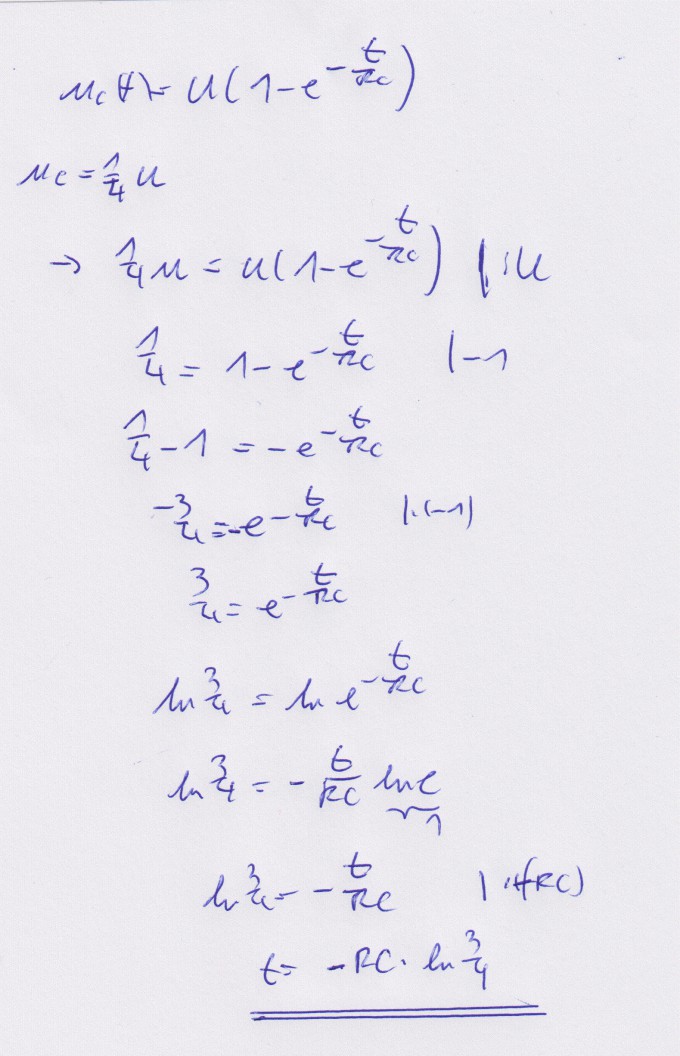 u_c(t) = U(1-e^{-\frac{t}{RC}})
u_c = \frac{1}{4} U
→ \frac{1}{4} U = U(1-e^{-\frac{t}{RC}}) |:U
\frac{1}{4} = 1-e^{-\frac{t}{RC}} |-1
\frac{1}{4} - 1 = -e^{-\frac{t}{RC}}
-\frac{3}{4} = -e^{-\frac{t}{RC}} |·(-1)
\frac{3}{4} = e^{-\frac{t}{RC}}
ln \frac{3}{4} = ln e^{-\frac{t}{RC}}
ln \frac{3}{4} = -\frac{t}{RC} \underbrace{ln e}_{1}
ln \frac{3}{4} = -\frac{t}{RC} |·(-RC)
t = -RC · ln \frac{3}{4}